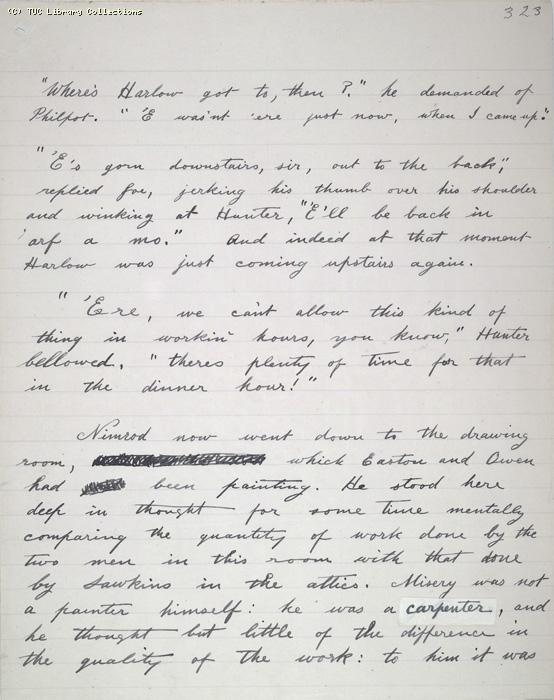 (C) TUC Library Collections
323
"Where's Harlow got to, then ?." he demanded of
Philpot. "'E was'nt 'ere just now, when I came up."
"'E's gorn downstairs, sir, out to the back",
replied Joe, jerking his thumb over his shoulder
and winking at Hunter, "'E'll be back in
'arf a mo." And indeed at that moment
Harlow was just coming upstairs again.
"'Ere, we can't allow this kind of
thing in workin' hours, you know," Hunter
bellowed. "theres plenty of time for that
in the dinner hour!"
Nimrod now went down to the drawing
room, which Easton and Owen
had been painting. He stood here
deep in thought for some time mentally
comparing the quantity of work done by the
two men in this room with that done
by Sawkins in the attics. Misery was not
a painter himself: he was a carpenter, and
he thought but little of the difference in
the quality of the work: to him it was